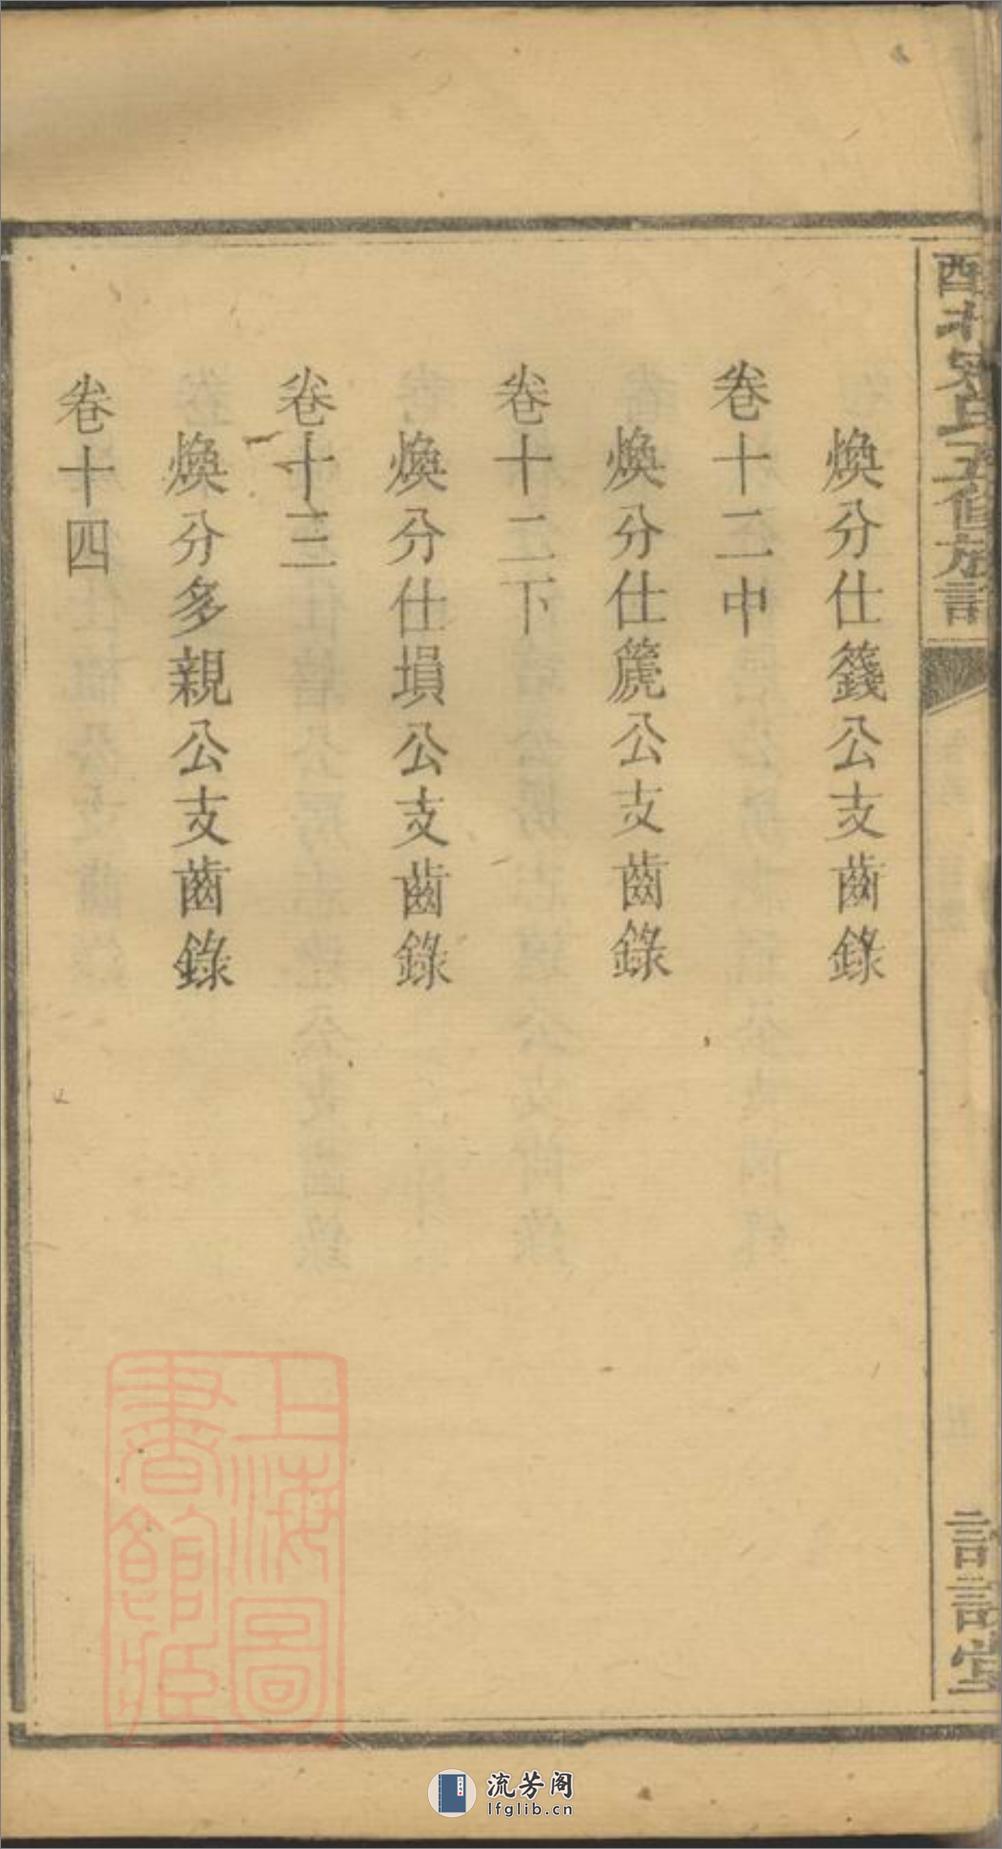 煥分仕籛公支齒錄
卷十二中
煥分仕篪公支齒錄
卷十二下
煥分仕塤公支齒錄
卷十三
煥分多親公支齒錄
卷十四
上海圖
書館藏
流芳阁
lfglib.cn